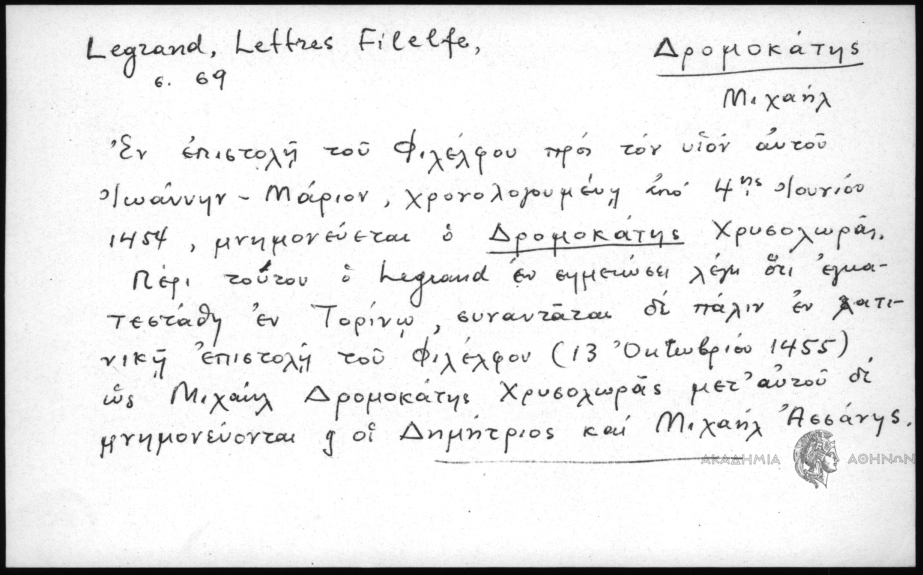 Legrand, Lettres Filelfe,
σ. 69
Δρομοκάτης
Μιχαήλ
Ἐν ἐπιστολῇ τοῦ Φιλέλφου πρὸς τὸν υἱὸν αὐτοῦ
Ἰωάννην - Μάριον, χρονολογουμένῃ ἀπὸ 4ης Ἰουνίου
1454, μνημονεύεται ὁ Δρομοκάτης Χρυσολωρᾶς.
Περὶ τούτου ὁ Legrand ἐν σημειώσει λέγει ὅτι ἐγκα-
τεστάθη ἐν Τορίνῳ, συναντᾶται δὲ πάλιν ἐν λατι-
νικῇ ἐπιστολῇ τοῦ Φιλέλφου (13 Ὀκτωβρίου 1455)
ὡς Μιχαήλ Δρομοκάτης Χρυσολωρᾶς μετ' αὐτοῦ δὲ
μνημονεύονται οἱ Δημήτριος καὶ Μιχαήλ Ἀσσάνης.
ΑΚΑΔΗΜΙΑ ΑΘΗΝΩΝ